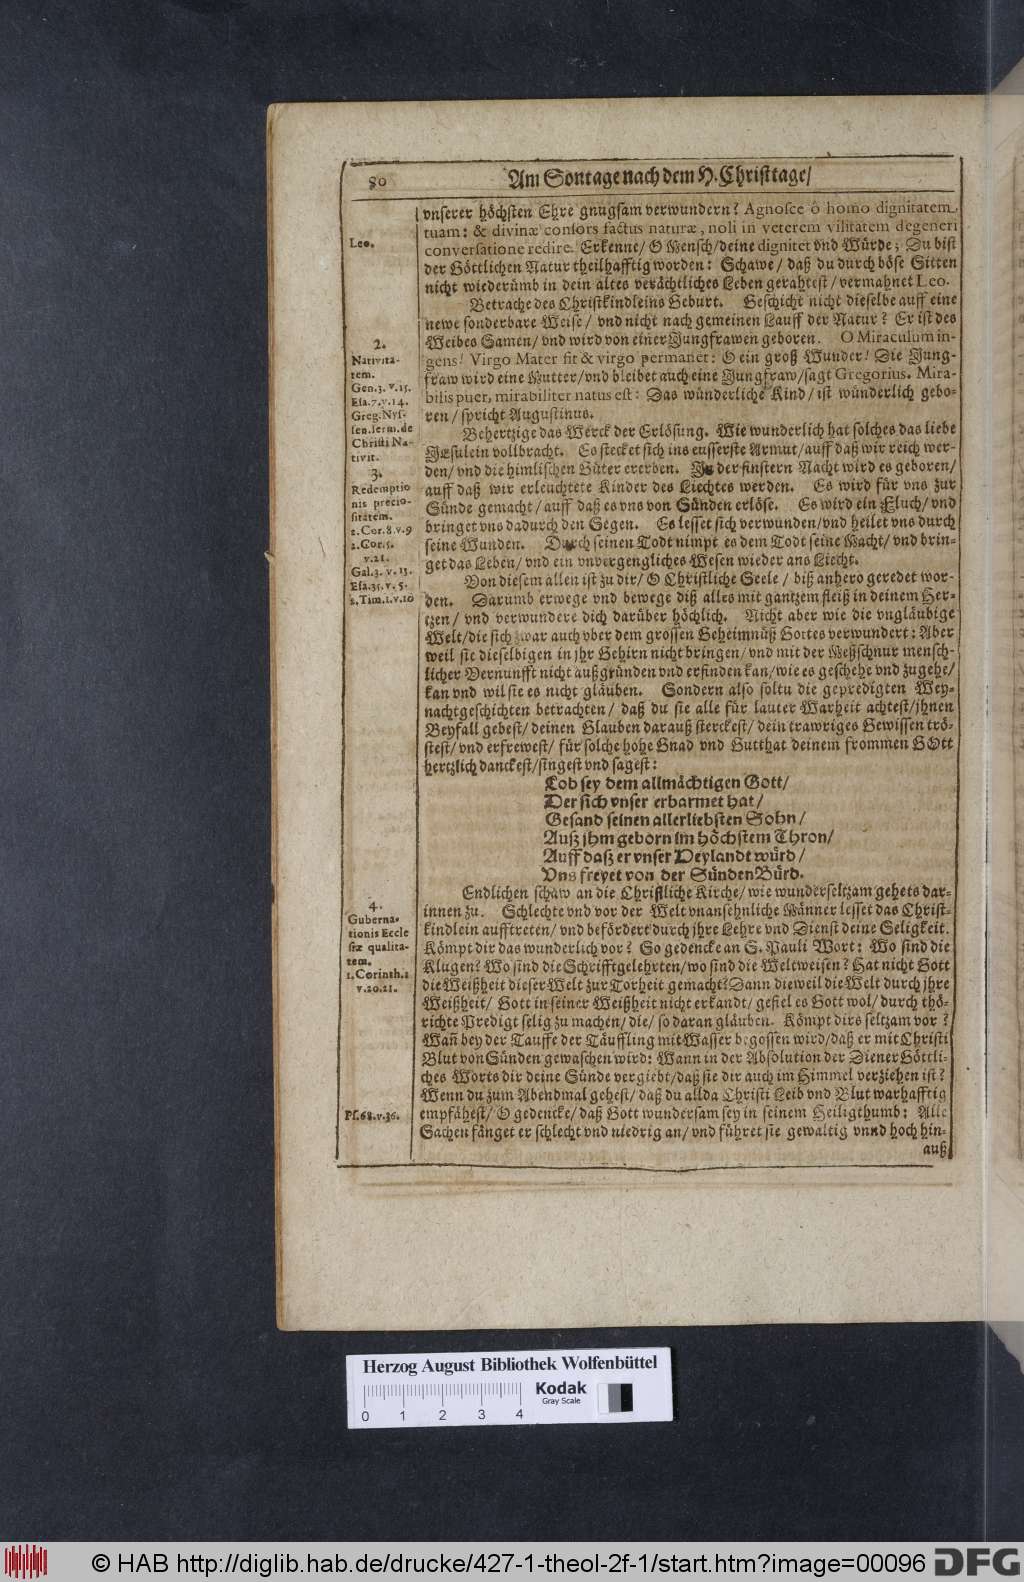 80
Am Sontage nach dem H. Christtage/
vnserer höchsten Ehre gnugsam verwundern? Agnosce ô homo dignitatem
tuam: & divinæ consors factus naturæ, noli in veterem vilitatem degeneri
Leo.
conversatione redire. Erkenne/ O Mensch/ deine dignitet vnd Würde; Du bist
der Göttlichen Natur theilhafftig worden: Schawe/ daß du durch böse Sitten
nicht wiederümb in dein altes verächtliches Leben gerahtest/ vermahnet Leo.
Betrache des Christkindleins Geburt. Geschicht nicht dieselbe auff eine
newe sonderbare Weise/ vnd nicht nach gemeinen Lauff der Natur? Er ist des
Weibes Samen/ vnd wird von einer Jungfrawen geboren. O Miraculum in-
gens! Virgo Mater fit & virgo permanet: O ein groß Wunder! Die Jung-
fraw wird eine Mutter/ vnd bleibet auch eine Jungfraw/ sagt Gregorius. Mira-
bilis puer, mirabiliter natus est: Das wünderliche Kind/ ist wünderlich gebo-
ren/ spricht Augustinus.
2.
Nativita-
tem.
Gen.3.v.15.
Esa.7.v.14.
Greg.Nys-
sen.serm.de
Christi Na-
tivit.
Behertzige das Werck der Erlösung. Wie wunderlich hat solches das liebe
JEsulein vollbracht. Es stecket sich ins eusserste Armut/ auff daß wir reich wer-
den/ vnd die himlischen Güter ererben. In der finstern Nacht wird es geboren/
auff daß wir erleuchtete Kinder des Liechtes werden. Es wird für vns zur
Sünde gemacht/ auff daß es vns von Sünden erlöse. Es wird ein Fluch/ vnd
bringet vns dadurch den Segen. Es lesset sich verwunden/ vnd heilet vns durch
seine Wunden. Durch seinen Todt nimpt es dem Todt seine Macht/ vnd brin-
get das Leben/ vnd ein vnvergengliches Wesen wieder ans Liecht.
3.
Redemptio
nis precio-
sitatem.
2.Cor.8.v.9
2.Cor.5.
v.21.
Gal.3.v.13.
Esa.35.v.5.
2.Tim.1.v.10
Von diesem allen ist zu dir/ O Christliche Seele/ biß anhero geredet wor-
den. Darumb erwege vnd bewege diß alles mit gantzem fleiß in deinem Her-
tzen/ vnd verwundere dich darüber höchlich. Nicht aber wie die vngläubige
Welt/ die sich zwar auch vber dem grossen Geheimnüß Gottes verwundert: Aber
weil sie dieselbigen in jhr Gehirn nicht bringen/ vnd mit der Meßschnur mensch-
licher Vernunfft nicht außgründen vnd erfinden kan/ wie es geschehe vnd zugehe/
kan vnd wil sie es nicht gläuben. Sondern also soltu die gepredigten Wey-
nachtgeschichten betrachten/ daß du sie alle für lauter Warheit achtest/ jhnen
Beyfall gebest/ deinen Glauben darauß sterckest/ dein trawriges Gewissen trö-
stest/ vnd erfrewest/ für solche hohe Gnad vnd Gutthat deinem frommen GOtt
hertzlich danckest/ singest vnd sagest:
Lob sey dem allmächtigen Gott/
Der sich vnser erbarmet hat/
Gesand seinen allerliebsten Sohn/
Auß jhm geborn im höchstem Thron/
Auff daß er vnser Heylandt würd/
Vns freyet von der Sünden Bürd.
Endlichen schaw an die Christliche Kirche/ wie wunderseltzam gehets dar-
innen zu. Schlechte vnd vor der Welt vnansehnliche Männer lesset das Christ-
kindlein aufftreten/ vnd befördert durch jhre Lehre vnd Dienst deine Seligkeit.
Kömpt dir das wunderlich vor? So gedencke an S. Pauli Wort: Wo sind die
Klugen? Wo sind die Schrifftgelehrten/ wo sind die Weltweisen? Hat nicht Gott
die Weißheit dieser Welt zur Torheit gemacht? Dann dieweil die Welt durch jhre
Weißheit/ Gott in seiner Weißheit nicht erkandt/ gefiel es Gott wol/ durch thö-
richte Predigt selig zu machen/ die/ so daran gläuben. Kömpt dirs seltzam vor?
Wañ bey der Tauffe der Täuffling mit Wasser begossen wird/ daß er mit Christi
Blut von Sünden gewaschen wird: Wann in der Absolution der Diener Göttli-
ches Worts dir deine Sünde vergiebt/ daß sie dir auch im Himmel verziehen ist?
Wenn du zum Abendmal gehest/ daß du allda Christi Leib vnd Blut warhafftig
empfähest/ O gedencke/ daß Gott wundersam sey in seinem Heiligthumb: Alle
Sachen fänget er schlecht vnd niedrig an/ vnd führet sie gewaltig vnnd hoch hin-
auß
4.
Guberna-
tionis Eccle
siæ qualita-
tem.
1.Corinth.1
v.20.21.
Ps.68.v.36.
Herzog August Bibliothek Wolfenbüttel
Kodak
Gray Scale
0 1 2 3 4
© HAB http://diglib.hab.de/drucke/427-1-theol-2f-1/start.htm?image=00096
DFG